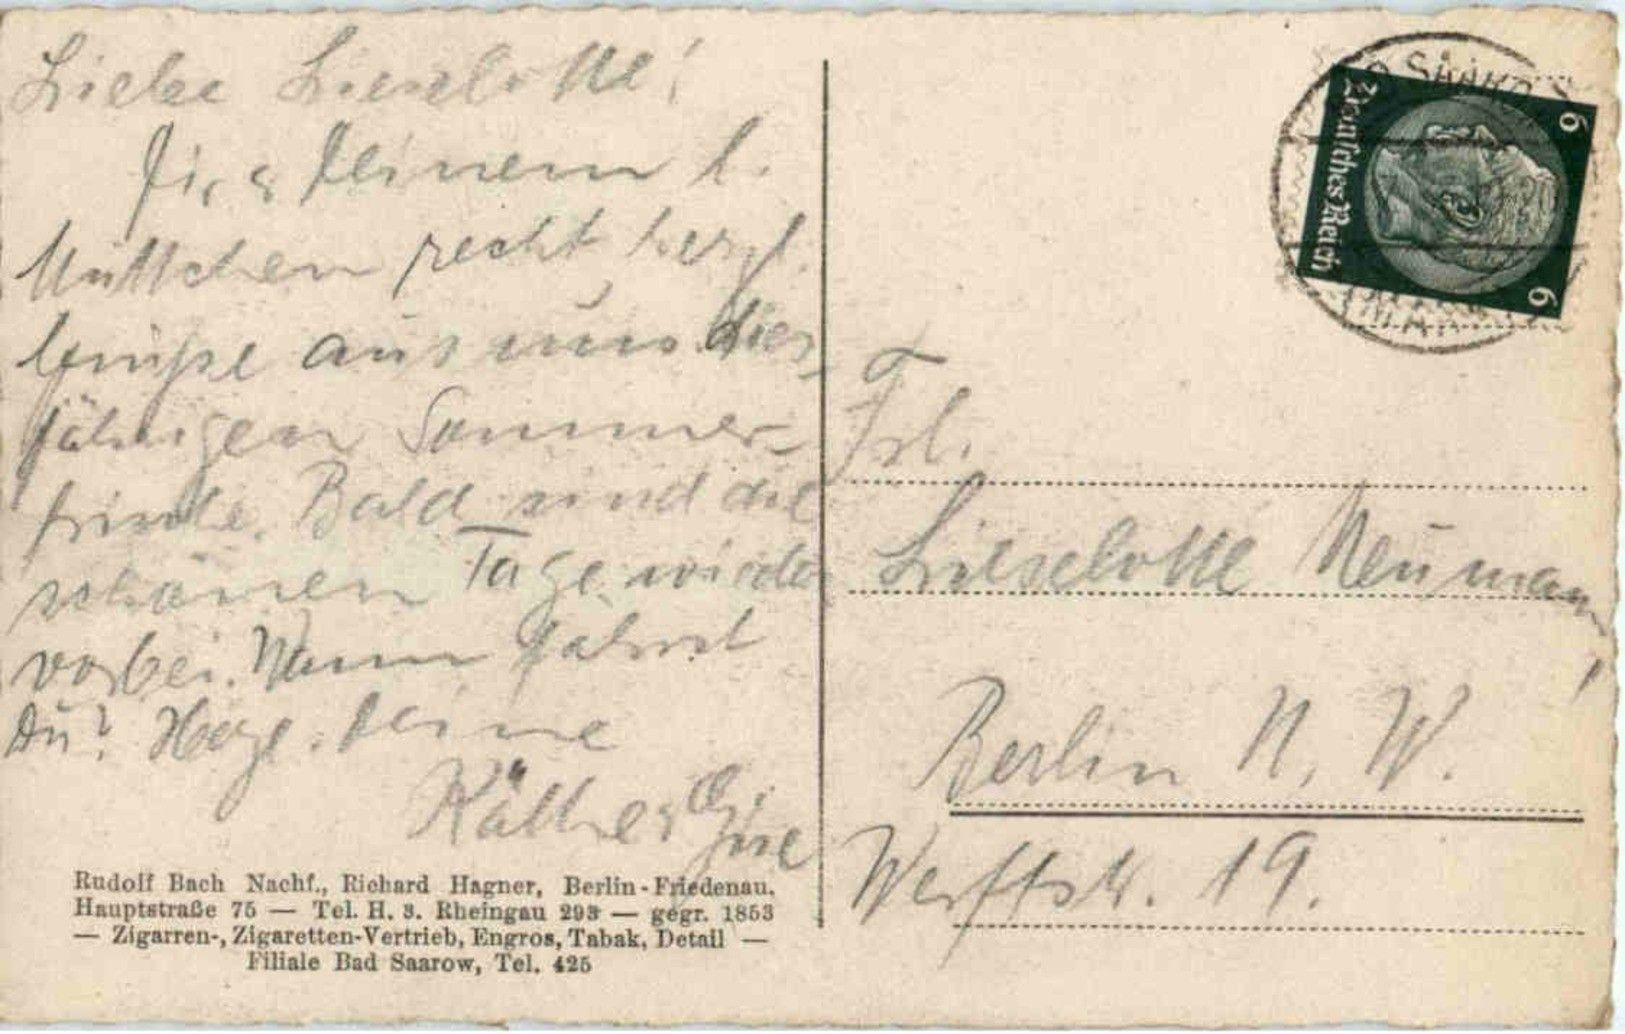 Liebe Lieselotte!
Dir & Deinem l.
Muttchen recht herzl.
Grüße aus uns. dies-
jährigen Sommer-
frische. Bald sind die
schönen Tage wieder
vorbei. Wann fährst
Du? Herzl. Deine
Käthe &
Rudolf Bach Nachf., Richard Hagner, Berlin-Friedenau.
Hauptstraße 75 — Tel. H. 3. Rheingau 293 — gegr. 1853
— Zigarren-, Zigaretten-Vertrieb, Engros, Tabak, Detail —
Filiale Bad Saarow, Tel. 425
Deutsches Reich
6
6
Frl.
Lieselotte Neumann
Berlin N. W.
Werftstr. 19.